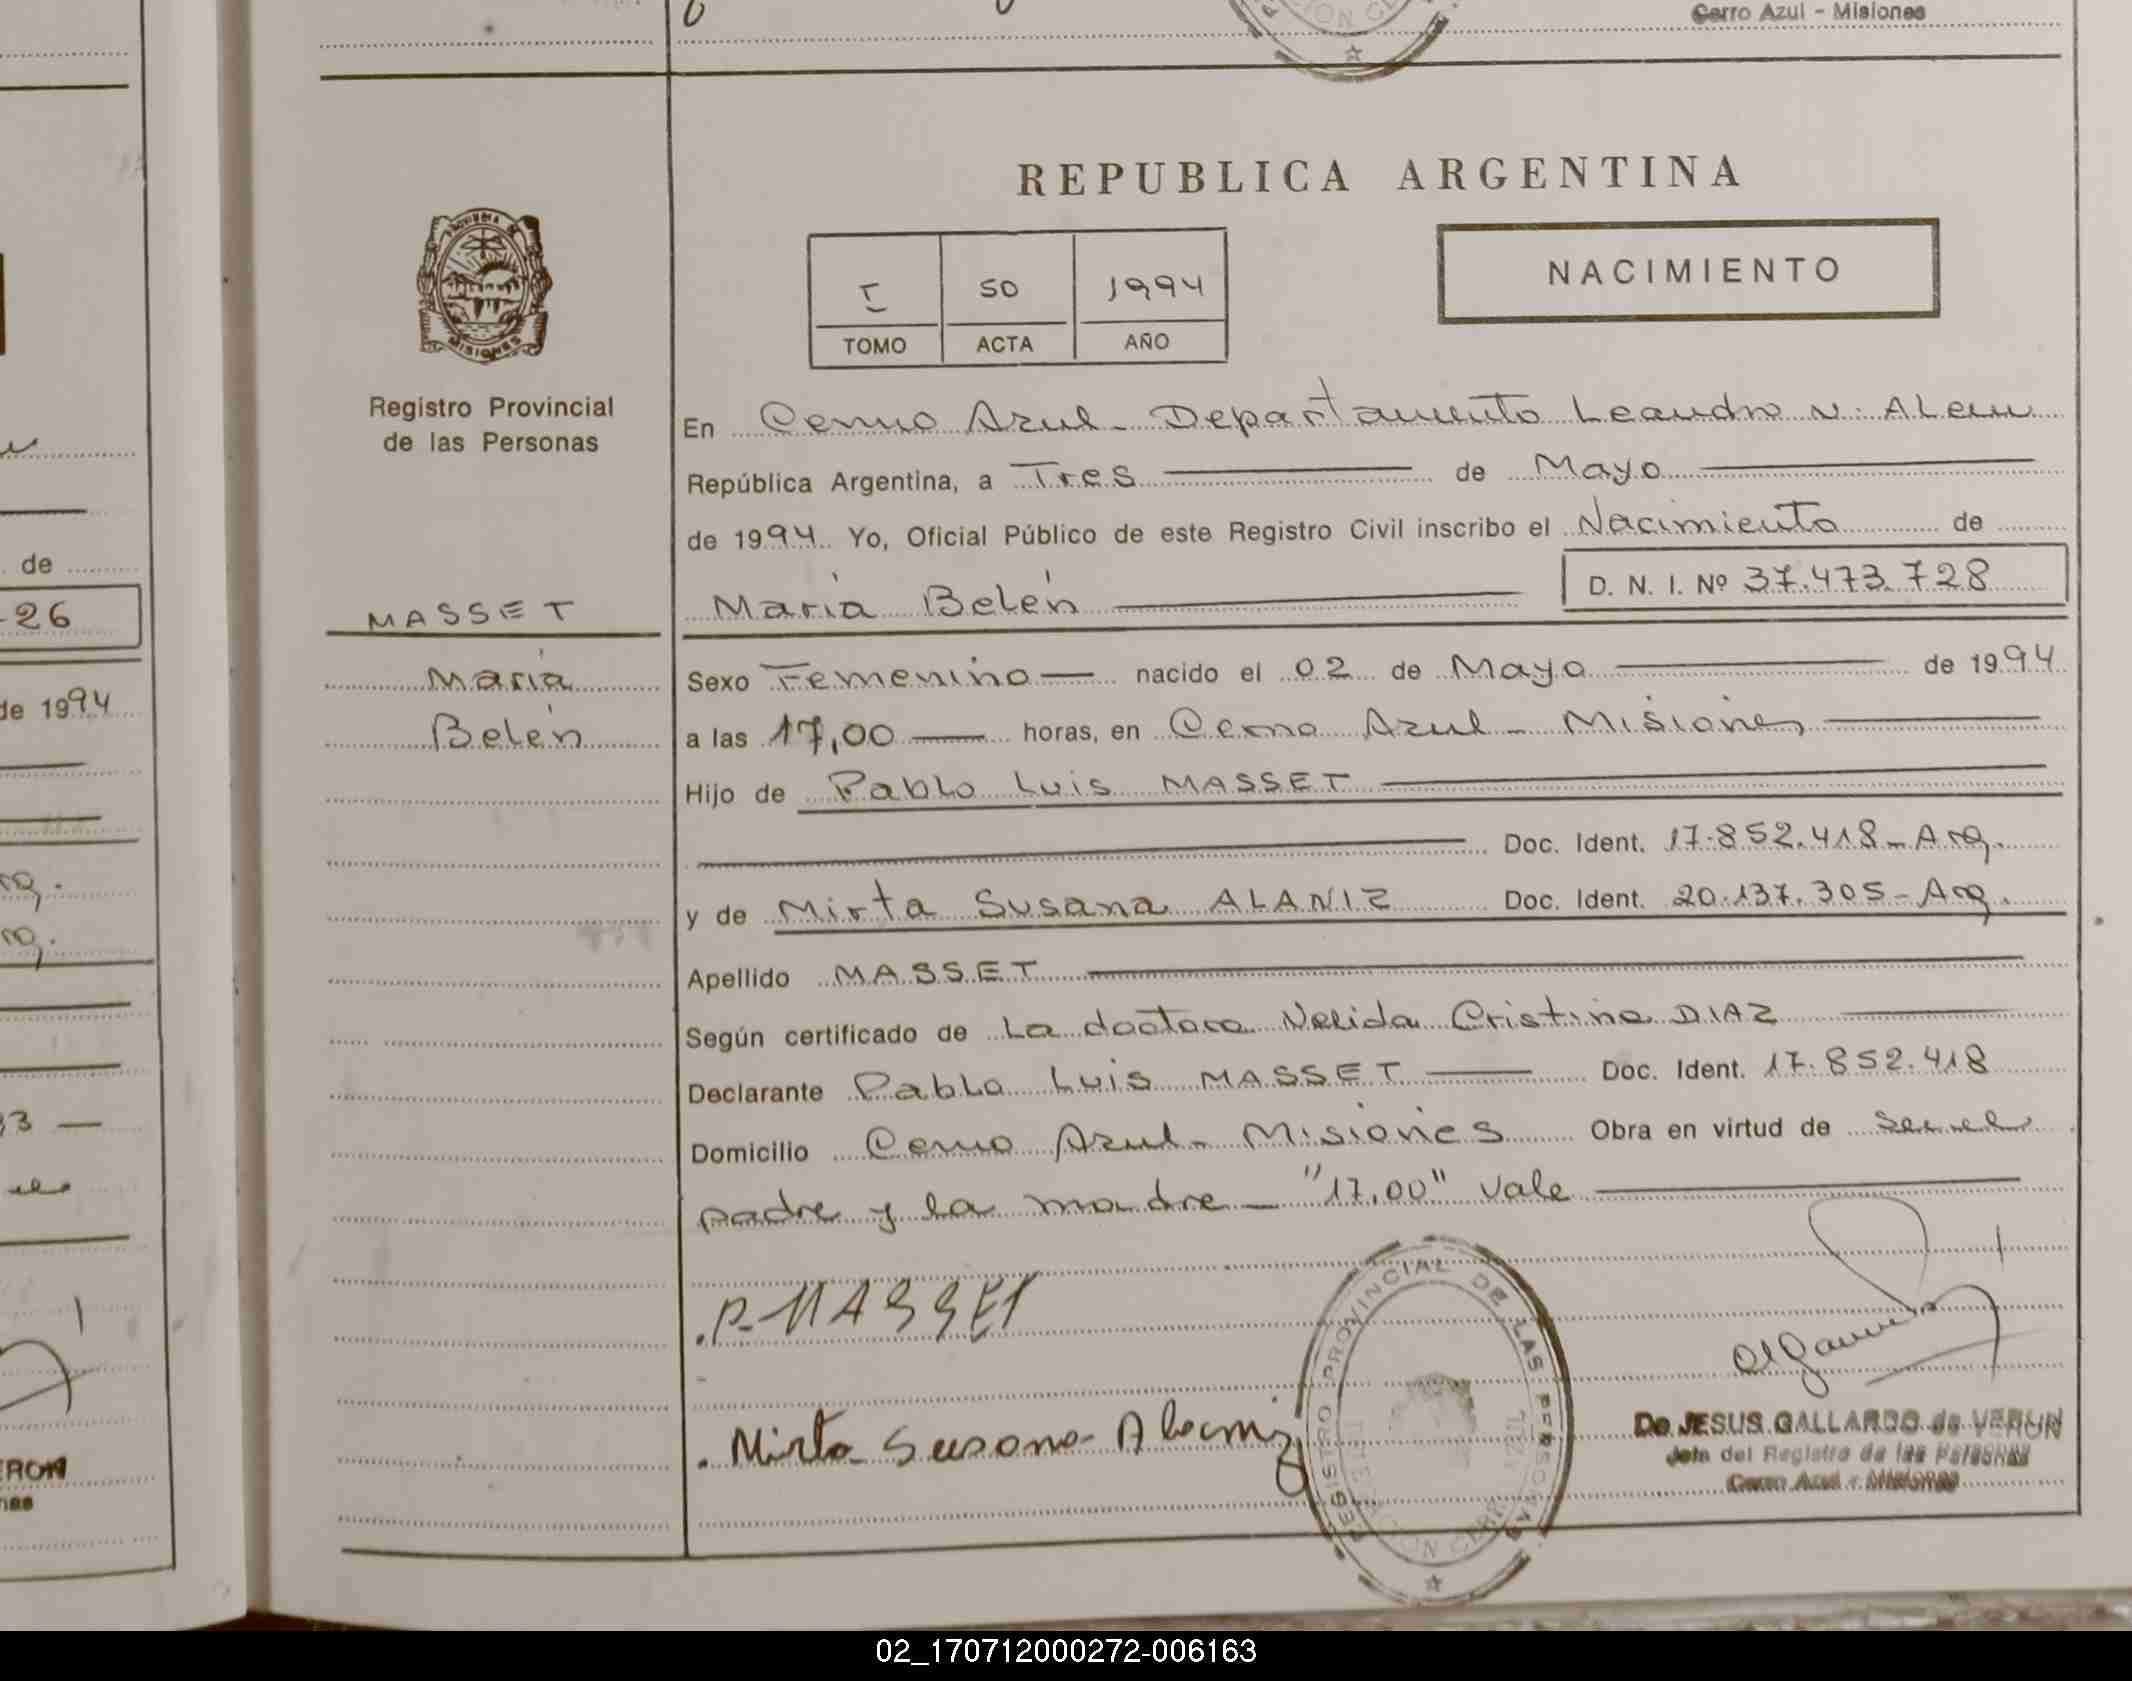 Cerro Azul - Misiones
REPUBLICA ARGENTINA
PROVINCIA DE
MISIONES
I 50 1994
TOMO ACTA AÑO
NACIMIENTO
Registro Provincial
de las Personas
En Cerro Azul - Departamento Leandro N. ALem
República Argentina, a Tres de Mayo
de 1994. Yo, Oficial Público de este Registro Civil inscribo el Nacimiento de
María Belén D. N. I. Nº 37.473.728
MASSET
María
Belén
Sexo Femenino nacido el 02 de Mayo de 1994
a las 17,00 horas, en Cerro Azul - Misiones
Hijo de Pablo Luis MASSET
Doc. Ident. 17.852.418 - Arg.
y de Mirta Susana ALANIZ Doc. Ident. 20.137.305 - Arg.
Apellido MASSET
Según certificado de La doctora Nelida Cristina DIAZ
Declarante Pablo Luis MASSET Doc. Ident. 17.852.418
Domicilio Cerro Azul - Misiones Obra en virtud de ser el
padre y la madre - "17,00" Vale
P. MASSET
Mirta Susana Alaniz
REGISTRO PROVINCIAL DE LAS PERSONAS
De JESUS GALLARDO de VERON
Jefe del Registro de las Personas
Cerro Azul - Misiones
de
26
de 1994
rg.
rg.
3
ERON
nes
02_170712000272-006163